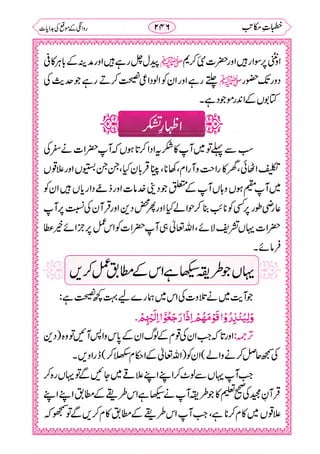 خطبات مکاتب ۲۴۶ روانگی کے موقع کی ہدایات
اونٹنی پر سوار ہیں اور حضرت نبی کریم ﷺ پیدل چل رہے ہیں اور مدینہ کے باہر کافی
دور تک حضور ﷺ چلتے رہے اور ان کو الوداعی نصیحت کرتے رہے جو حدیث کی
کتابوں کے اندر موجود ہے۔
اظہارِ تشکر
سب سے پہلے تو میں آپ کا شکریہ ادا کرتا ہوں کہ آپ حضرات نے سفر کی
تکلیف اٹھائی، گھر کا راحت و آرام، کھانا، پینا قربان کیا، جن جن بستیوں اور علاقوں
میں آپ مقیم ہوں وہاں آپ کے متعلق جو دینی خدمات اور ذمے داریاں ہیں ان کو
عارضی طور پر کسی کو نائب بنا کر حوالے کیا اور پھر محض دین اور قرآن کی نسبت پر آپ
حضرات یہاں تشریف لائے، اللہ تعالیٰ ہی آپ حضرات کو اس عمل پر جزائے خیر عطا
فرمائے۔
یہاں جو طریقہ سیکھا ہے اس کے مطابق عمل کریں
جو آیت میں نے تلاوت کی اس میں ہمارے لیے بہت کچھ نصیحت ہے:
وَلِيُنْذِرُوْا قَوْمَهُمْ إِذَا رَجَعُوْا إِلَيْهِمْ.
ترجمہ: اور تاکہ جب ان کی قوم کے لوگ ان کے پاس واپس آئیں تو وہ (دین
کی سمجھ حاصل کرنے والے) ان کو (اللہ تعالیٰ کے احکام سکھلا کر) ڈراویں۔
جب آپ یہاں سے لوٹ کر اپنے اپنے علاقے میں جائیں گے تو یہاں رہ کر
قرآن مجید کی صحیح تعلیم کا جو طریقہ آپ نے سیکھا ہے اس طریقے کے مطابق اپنے اپنے
علاقوں میں کام کرنا ہے، جب آپ اس طریقے کے مطابق کام کریں گے تو سمجھو کہ